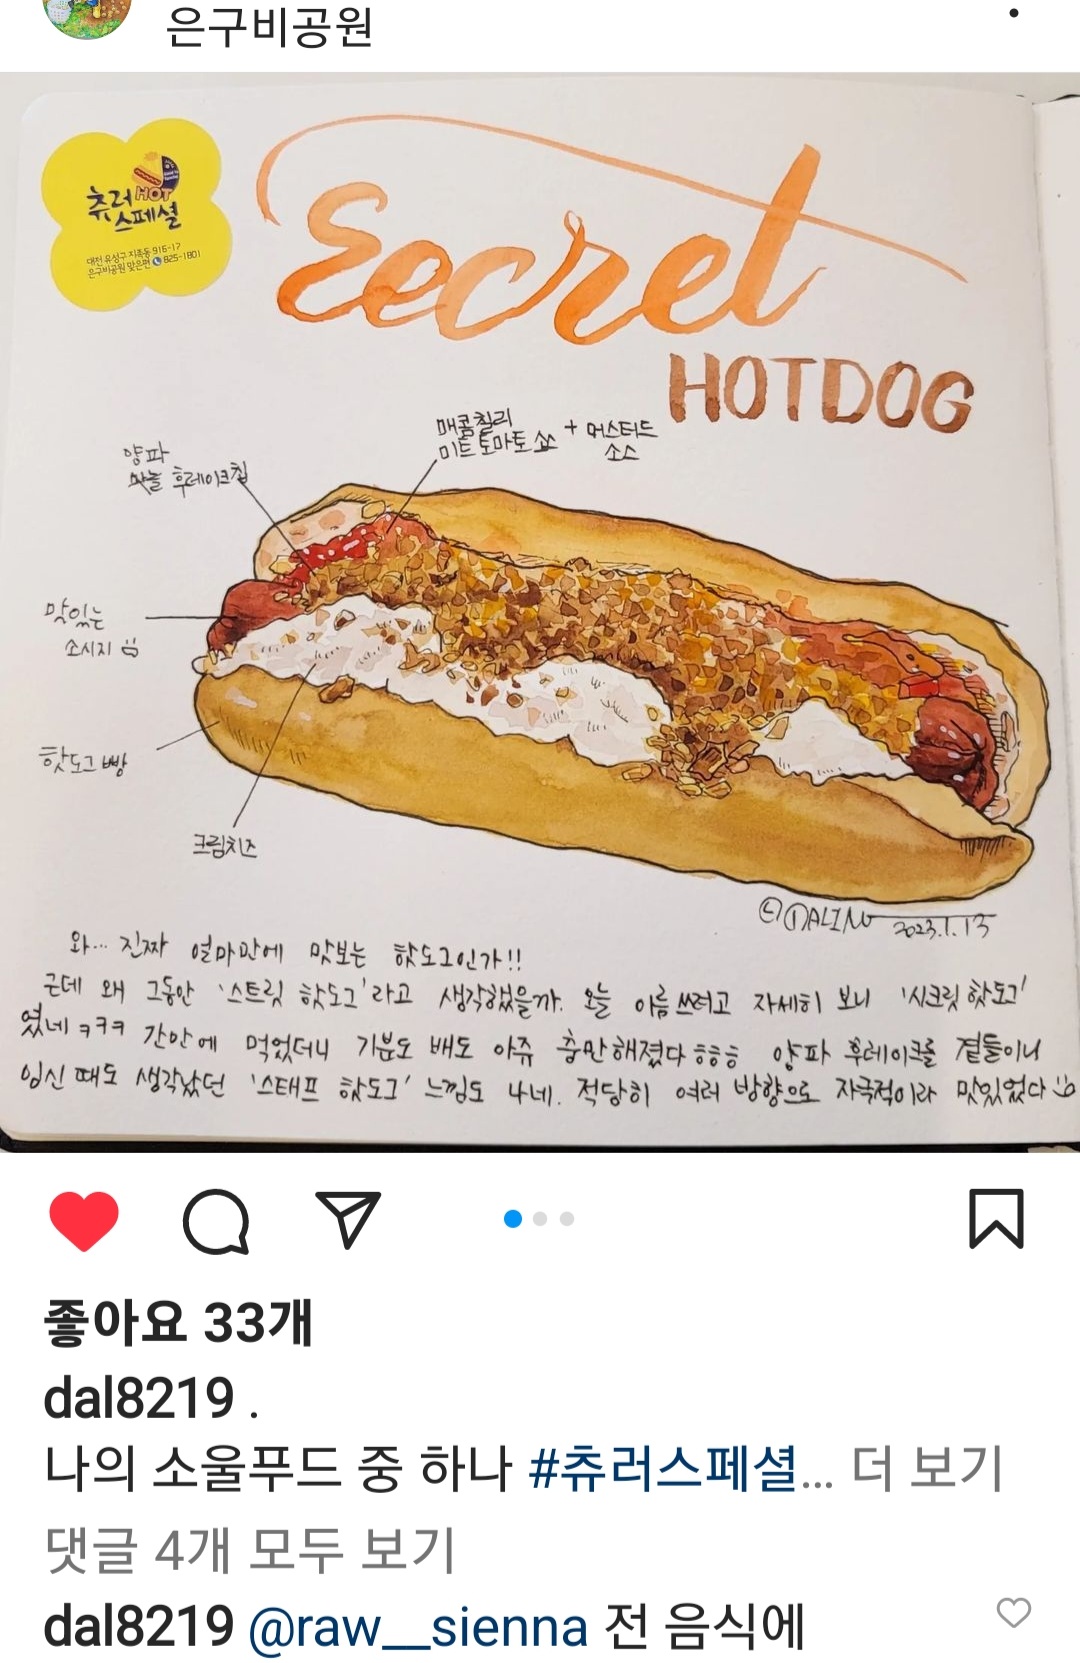 은구비공원
츄러HOT
스페셜
대전 유성구 지족동 916-17
은구비공원 맞은편 825-1801
Secret
HOTDOG
매콤칠리
미트 토마토 쏘스 + 머스터드
소스
양파
마늘 후레이크칩
맛있는
소시지
핫도그 빵
크림치즈
DALING 2023.1.13
와... 진짜 얼마만에 맛보는 핫도그인가!!
근데 왜 그동안 '스트릿 핫도그'라고 생각했을까. 오늘 이름 쓰려고 자세히 보니 '시크릿 핫도그'
였네 ㅋㅋㅋ 간만에 먹었더니 기분도 배도 아쥬 충만해졌다 ㅎㅎㅎ 양파 후레이크를 곁들이니
임신 때도 생각났던 '스태프 핫도그' 느낌도 나네. 적당히 여러 방향으로 자극적이라 맛있었다
좋아요 33개
dal8219 .
나의 소울푸드 중 하나 #츄러스페셜... 더 보기
댓글 4개 모두 보기
dal8219 @raw__sienna 전 음식에